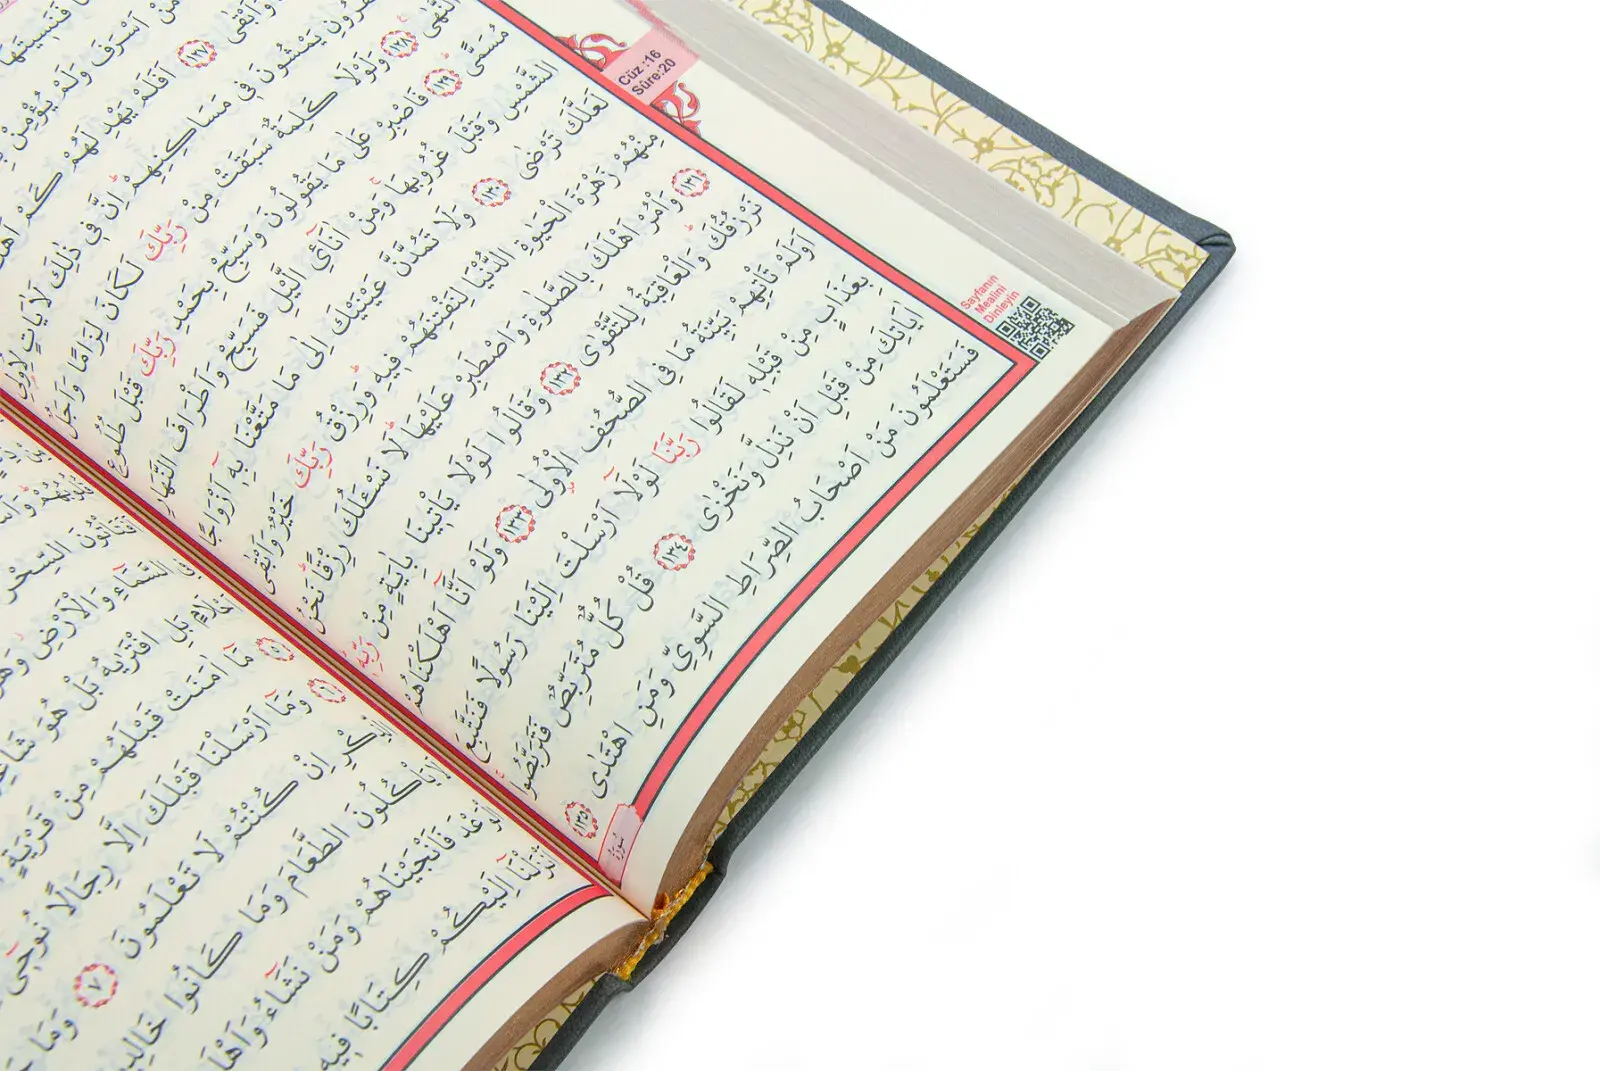 فَنَسِيتَهَا
مَنْ اَسْرَفَ وَلَمْ يُؤْمِنْ
وَاَبْقٰى ١٢٧ اَفَلَمْ يَهْدِ لَهُمْ كَمْ
يَمْشُونَ فِى مَسَاكِنِهِمْ اِنَّ فِى ذٰلِكَ لَاٰيَاتٍ لِاُولِى
النُّهٰى ١٢٨ وَلَوْلَا كَلِمَةٌ سَبَقَتْ مِنْ رَبِّكَ لَكَانَ لِزَامًا وَاَجَلٌ
مُسَمًّى ١٢٩ فَاصْبِرْ عَلٰى مَا يَقُولُونَ وَسَبِّحْ بِحَمْدِ رَبِّكَ قَبْلَ طُلُوعِ
الشَّمْسِ وَقَبْلَ غُرُوبِهَا وَمِنْ اٰنَٓائِ الَّيْلِ فَسَبِّحْ وَاَطْرَافَ النَّهَارِ
لَعَلَّكَ تَرْضٰى ١٣٠ وَلَا تَمُدَّنَّ عَيْنَيْكَ اِلٰى مَا مَتَّعْنَا بِهٖٓ اَزْوَاجًا
مِنْهُمْ زَهْرَةَ الْحَيٰوةِ الدُّنْيَا لِنَفْتِنَهُمْ فِيهِ وَرِزْقُ رَبِّكَ خَيْرٌ وَاَبْقٰى
١٣١ وَاْمُرْ اَهْلَكَ بِالصَّلٰوةِ وَاصْطَبِرْ عَلَيْهَا لَا نَسْـَٔلُكَ رِزْقًا نَحْنُ
نَرْزُقُكَ وَالْعَاقِبَةُ لِلتَّقْوٰى ١٣٢ وَقَالُوا لَوْلَا يَاْتِينَا بِاٰيَةٍ مِنْ رَبِّهٖ
اَوَلَمْ تَاْتِهِمْ بَيِّنَةُ مَا فِى الصُّحُفِ الْاُولٰى ١٣٣ وَلَوْ اَنَّٓا اَهْلَكْنَاهُمْ
بِعَذَابٍ مِنْ قَبْلِهٖ لَقَالُوا رَبَّنَا لَوْلَٓا اَرْسَلْتَ اِلَيْنَا رَسُولًا فَنَتَّبِعَ
اٰيَاتِكَ مِنْ قَبْلِ اَنْ نَذِلَّ وَنَخْزٰى ١٣٤ قُلْ كُلٌّ مُتَرَبِّصٌ فَتَرَبَّصُوا
فَسَتَعْلَمُونَ مَنْ اَصْحَابُ الصِّرَاطِ السَّوِيِّ وَمَنِ اهْتَدٰى ١٣٥
Cüz :16
Sûre:20
Sayfanın
Mealini
Dinleyin
سُورَةُ
اَفَتَاْتُونَ السِّحْرَ
فِى السَّمَٓاءِ وَالْاَرْضِ وَهُوَ
اَحْلَامٍ بَلِ افْتَرٰيهُ بَلْ هُوَ شَاعِرٌ
٥ مَٓا اٰمَنَتْ قَبْلَهُمْ مِنْ قَرْيَةٍ
٦ وَمَٓا اَرْسَلْنَا قَبْلَكَ اِلَّا رِجَالًا نُوحِٓى
الذِّكْرِ اِنْ كُنْتُمْ لَا تَعْلَمُونَ ٧ وَمَا
لَا يَاْكُلُونَ الطَّعَامَ وَمَا كَانُوا خَالِدِينَ
الْوَعْدَ فَاَنْجَيْنَاهُمْ وَمَنْ نَشَٓاءُ وَاَهْلَ
اَنْزَلْنَٓا اِلَيْكُمْ كِتَابًا فِيهِ